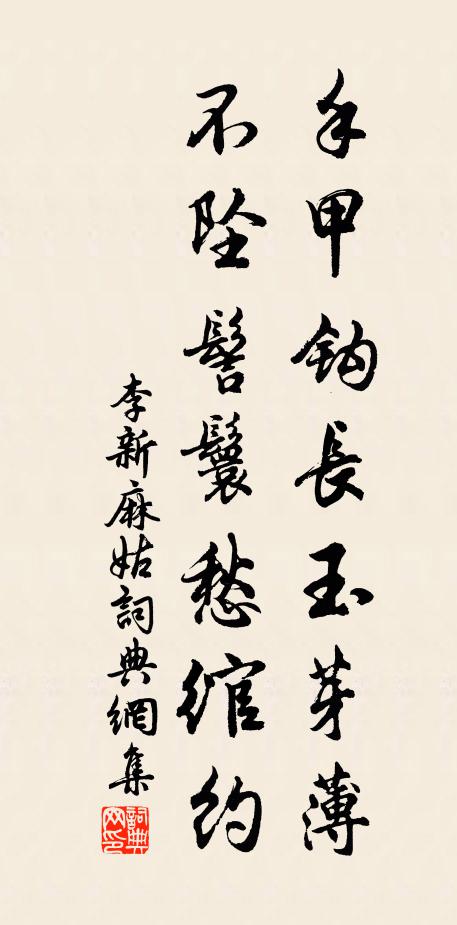 手甲鈎長玉芽薄
不墜髻鬟愁綰約
李新麻姑詞典網集
詞典網印